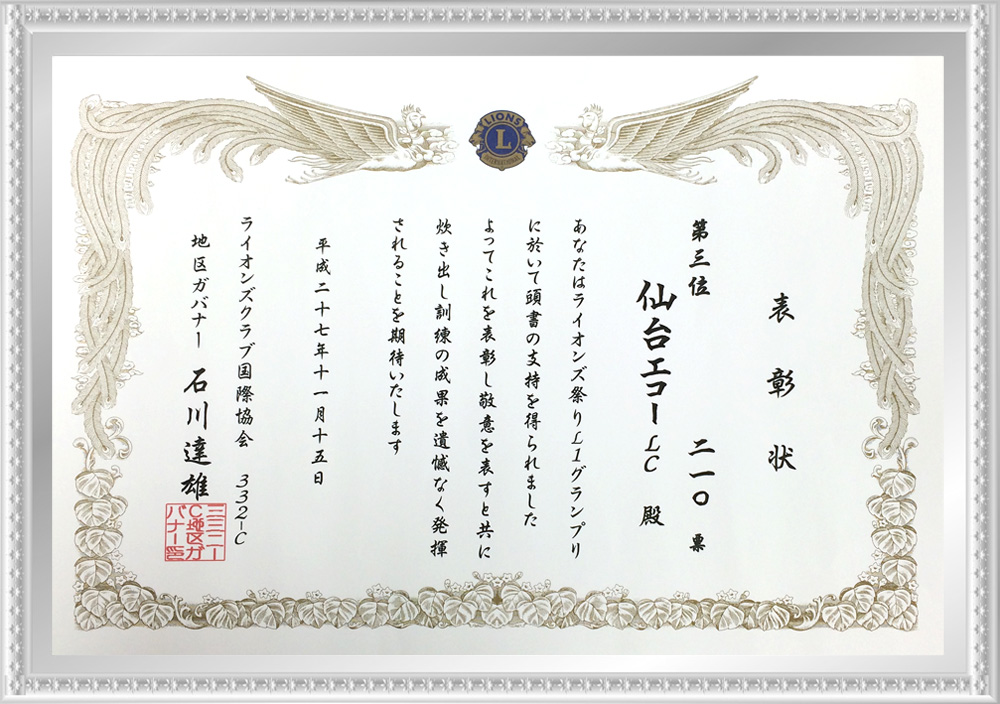 LIONS
L
INTERNATIONAL
表彰状
第三位 二一〇票
仙台エコーLC 殿
あなたはライオンズ祭りL1グランプリ
に於いて頭書の支持を得られました
よってこれを表彰し敬意を表すと共に
炊き出し訓練の成果を遺憾なく発揮
されることを期待いたします
平成二十七年十一月十五日
ライオンズクラブ国際協会 332-C
地区ガバナー 石川達雄
三三二ー
C地区ガ
バナー印